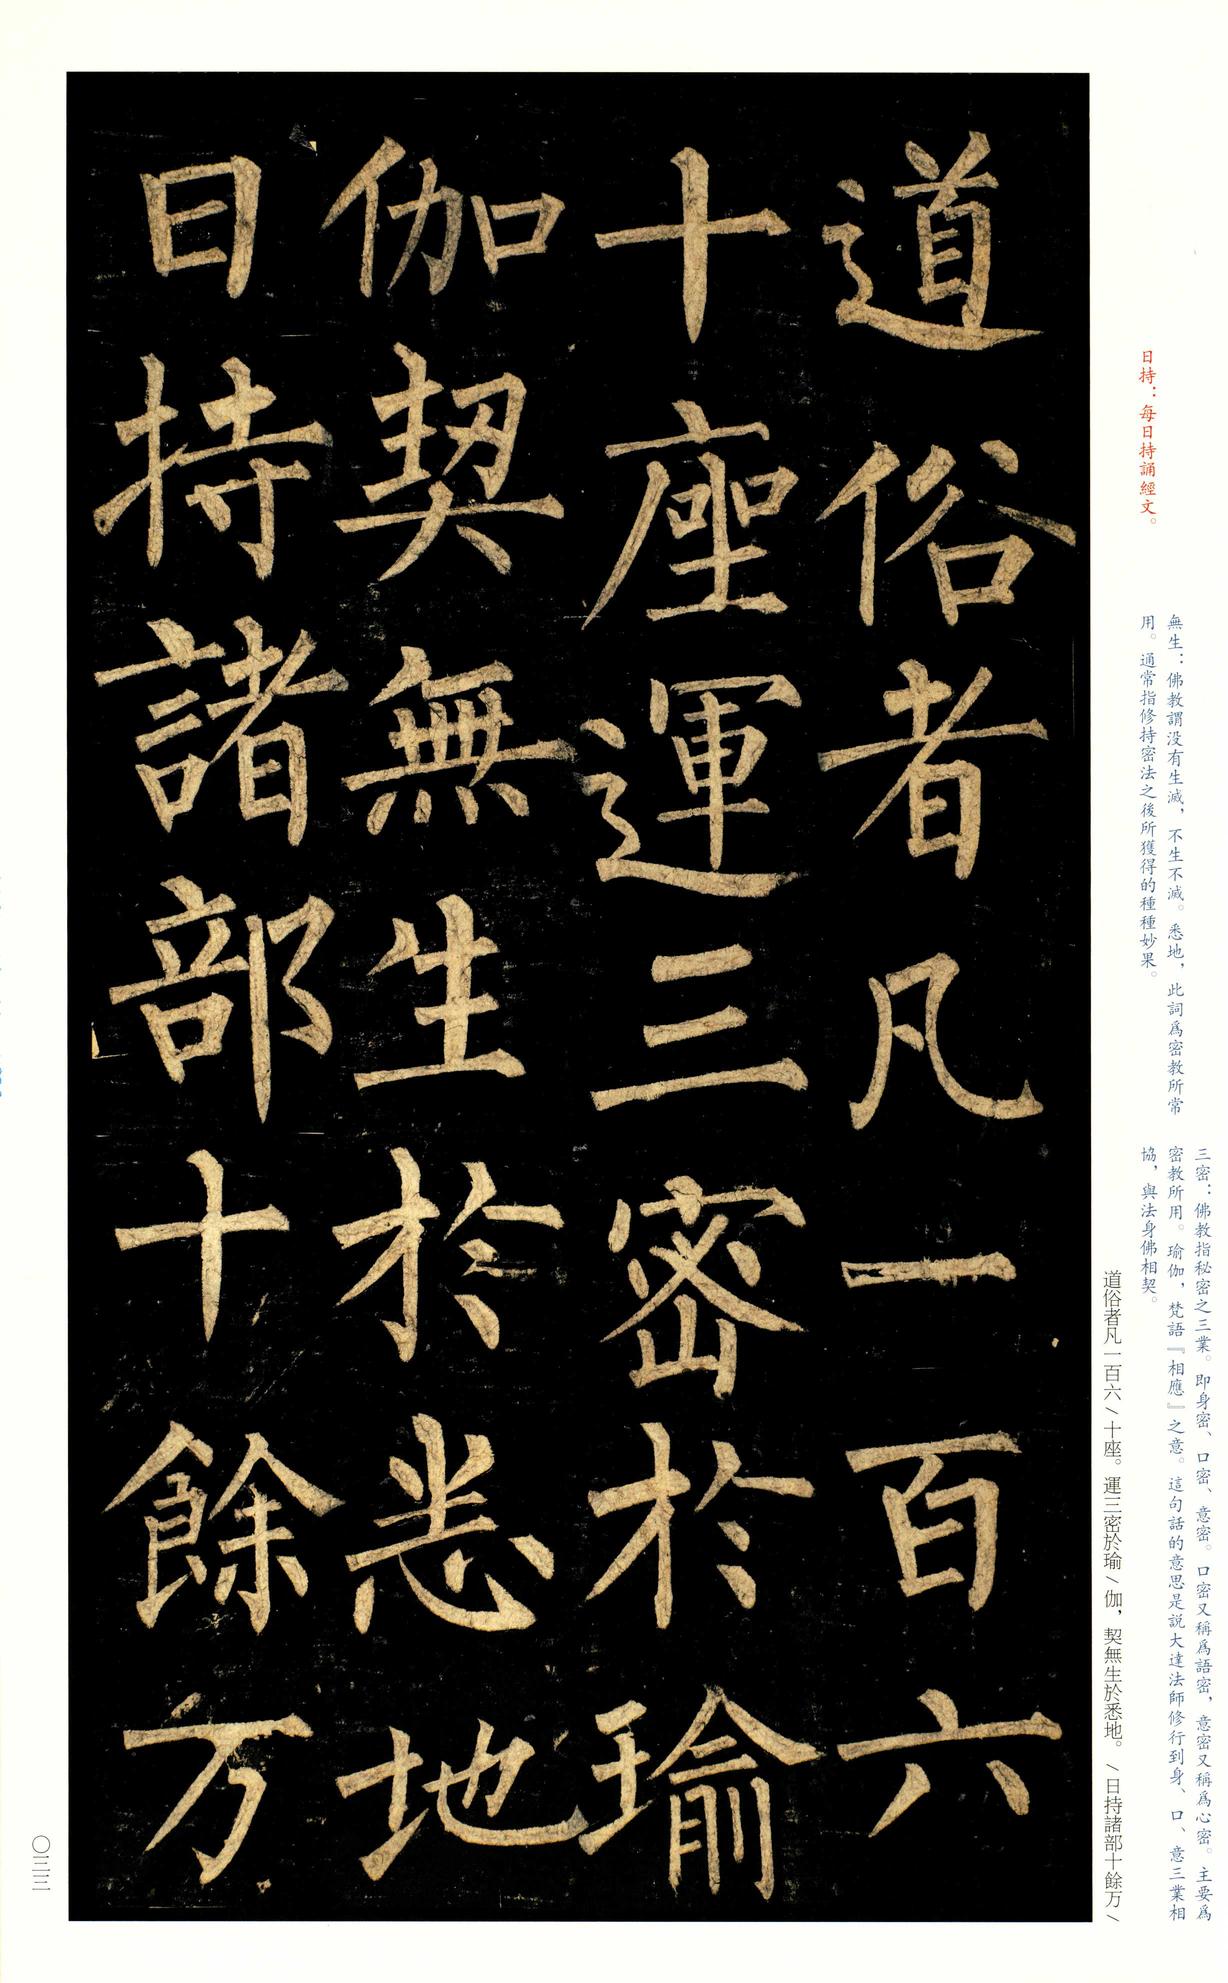 三密：佛教指秘密之三業。即身密、口密、意密。口密又稱爲語密，意密又稱爲心密。主要爲
密教所用。瑜伽，梵語『相應』之意。這句話的意思是説大達法師修行到身、口、意三業相
協，與法身佛相契。
無生：佛教謂没有生滅，不生不滅。悉地，此詞爲密教所常
用。通常指修持密法之後所獲得的種種妙果。
日持：每日持誦經文。
道俗者凡一百六＼十座。運三密於瑜＼伽，契無生於悉地。＼日持諸部十餘万＼
道俗者凡一百六
十座運三密於瑜
伽契無生於悉地
日持諸部十餘万
〇三三